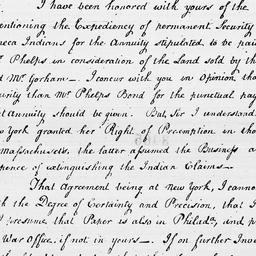 I have been honored with yours of the
entioning the Expediency of permanent Security
neca Indians for the Annuity stipulated to be paid
Phelps in consideration of the Land sold by th
d Mr. Gorham—. I concur with you in Opinion tha
urity than Mr. Phelps Bond for the punctual pay
at Annuity should be given. But, Sir I understand
York granted her Right of Preemption in tho
Massachusetts, the latter assumed the Business a
pence of extinguishing the Indian Claims—.
That Agreement being at new York, I canno
th the Degree of Certainty and Precision, that I
I presume that Paper is also in Philada, and p
War Office, if not in yours—. If on further Inve